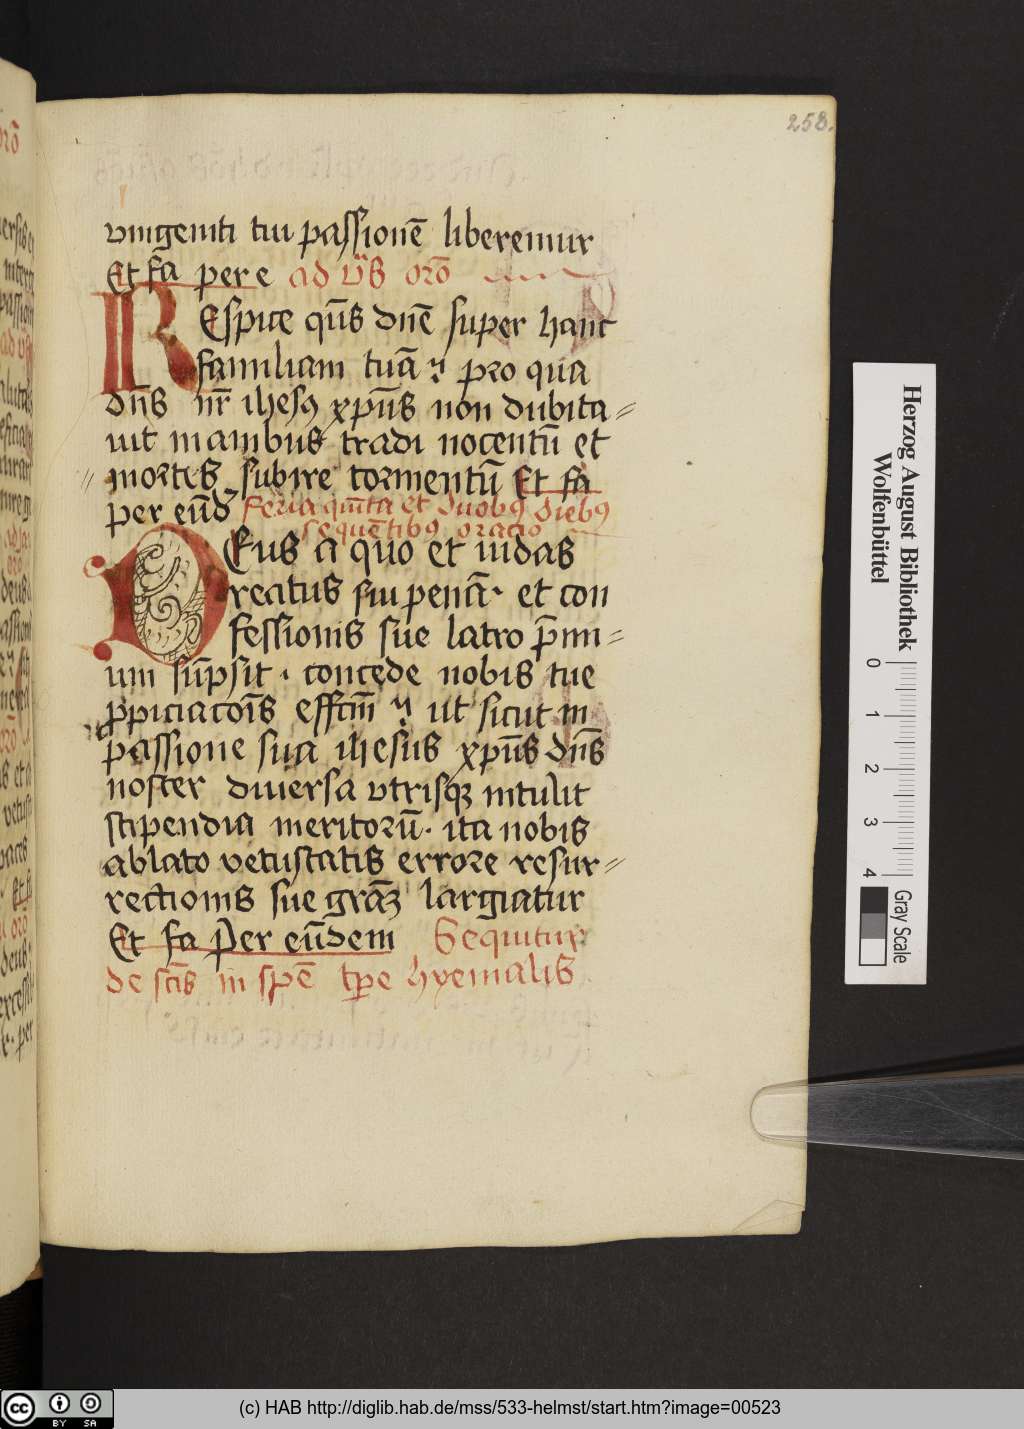 258.
vnigeniti tui passionē liberemur
Et fa per e ad vs̄ orō
REspice qūs dn̄e super hanc
familiam tuā ⁊ pro qua
dn̄s nr̄ ihesꝯ xpn̄s non dubita⸗
uit manibus tradi nocentū et
mortes subire tormentū Et fa
per eūd
Feria quīta et duobꝯ diebꝯ
sequētibꝯ oratio
DEus a quo et iudas
reatus sui penā· et con
fessionis sue latro p̄mi⸗
um sūpsit · concede nobis tue
ꝓpiciacoīs effcm̄ ⁊ ut sicut in
passione sua ihesus xpn̄s dn̄s
noster diuersa vtrisqꝫ intulit
stipendia meritorū· ita nobis
ablato vetustatis errore resur⸗
rectionis sue grāꝫ largiatur
Et fa Per eūdem Sequitur
de scīs in spē tp̄e hyemalis
Herzog August Bibliothek
Wolfenbüttel
0 1 2 3 4
Gray Scale
cc BY SA
(c) HAB http://diglib.hab.de/mss/533-helmst/start.htm?image=00523